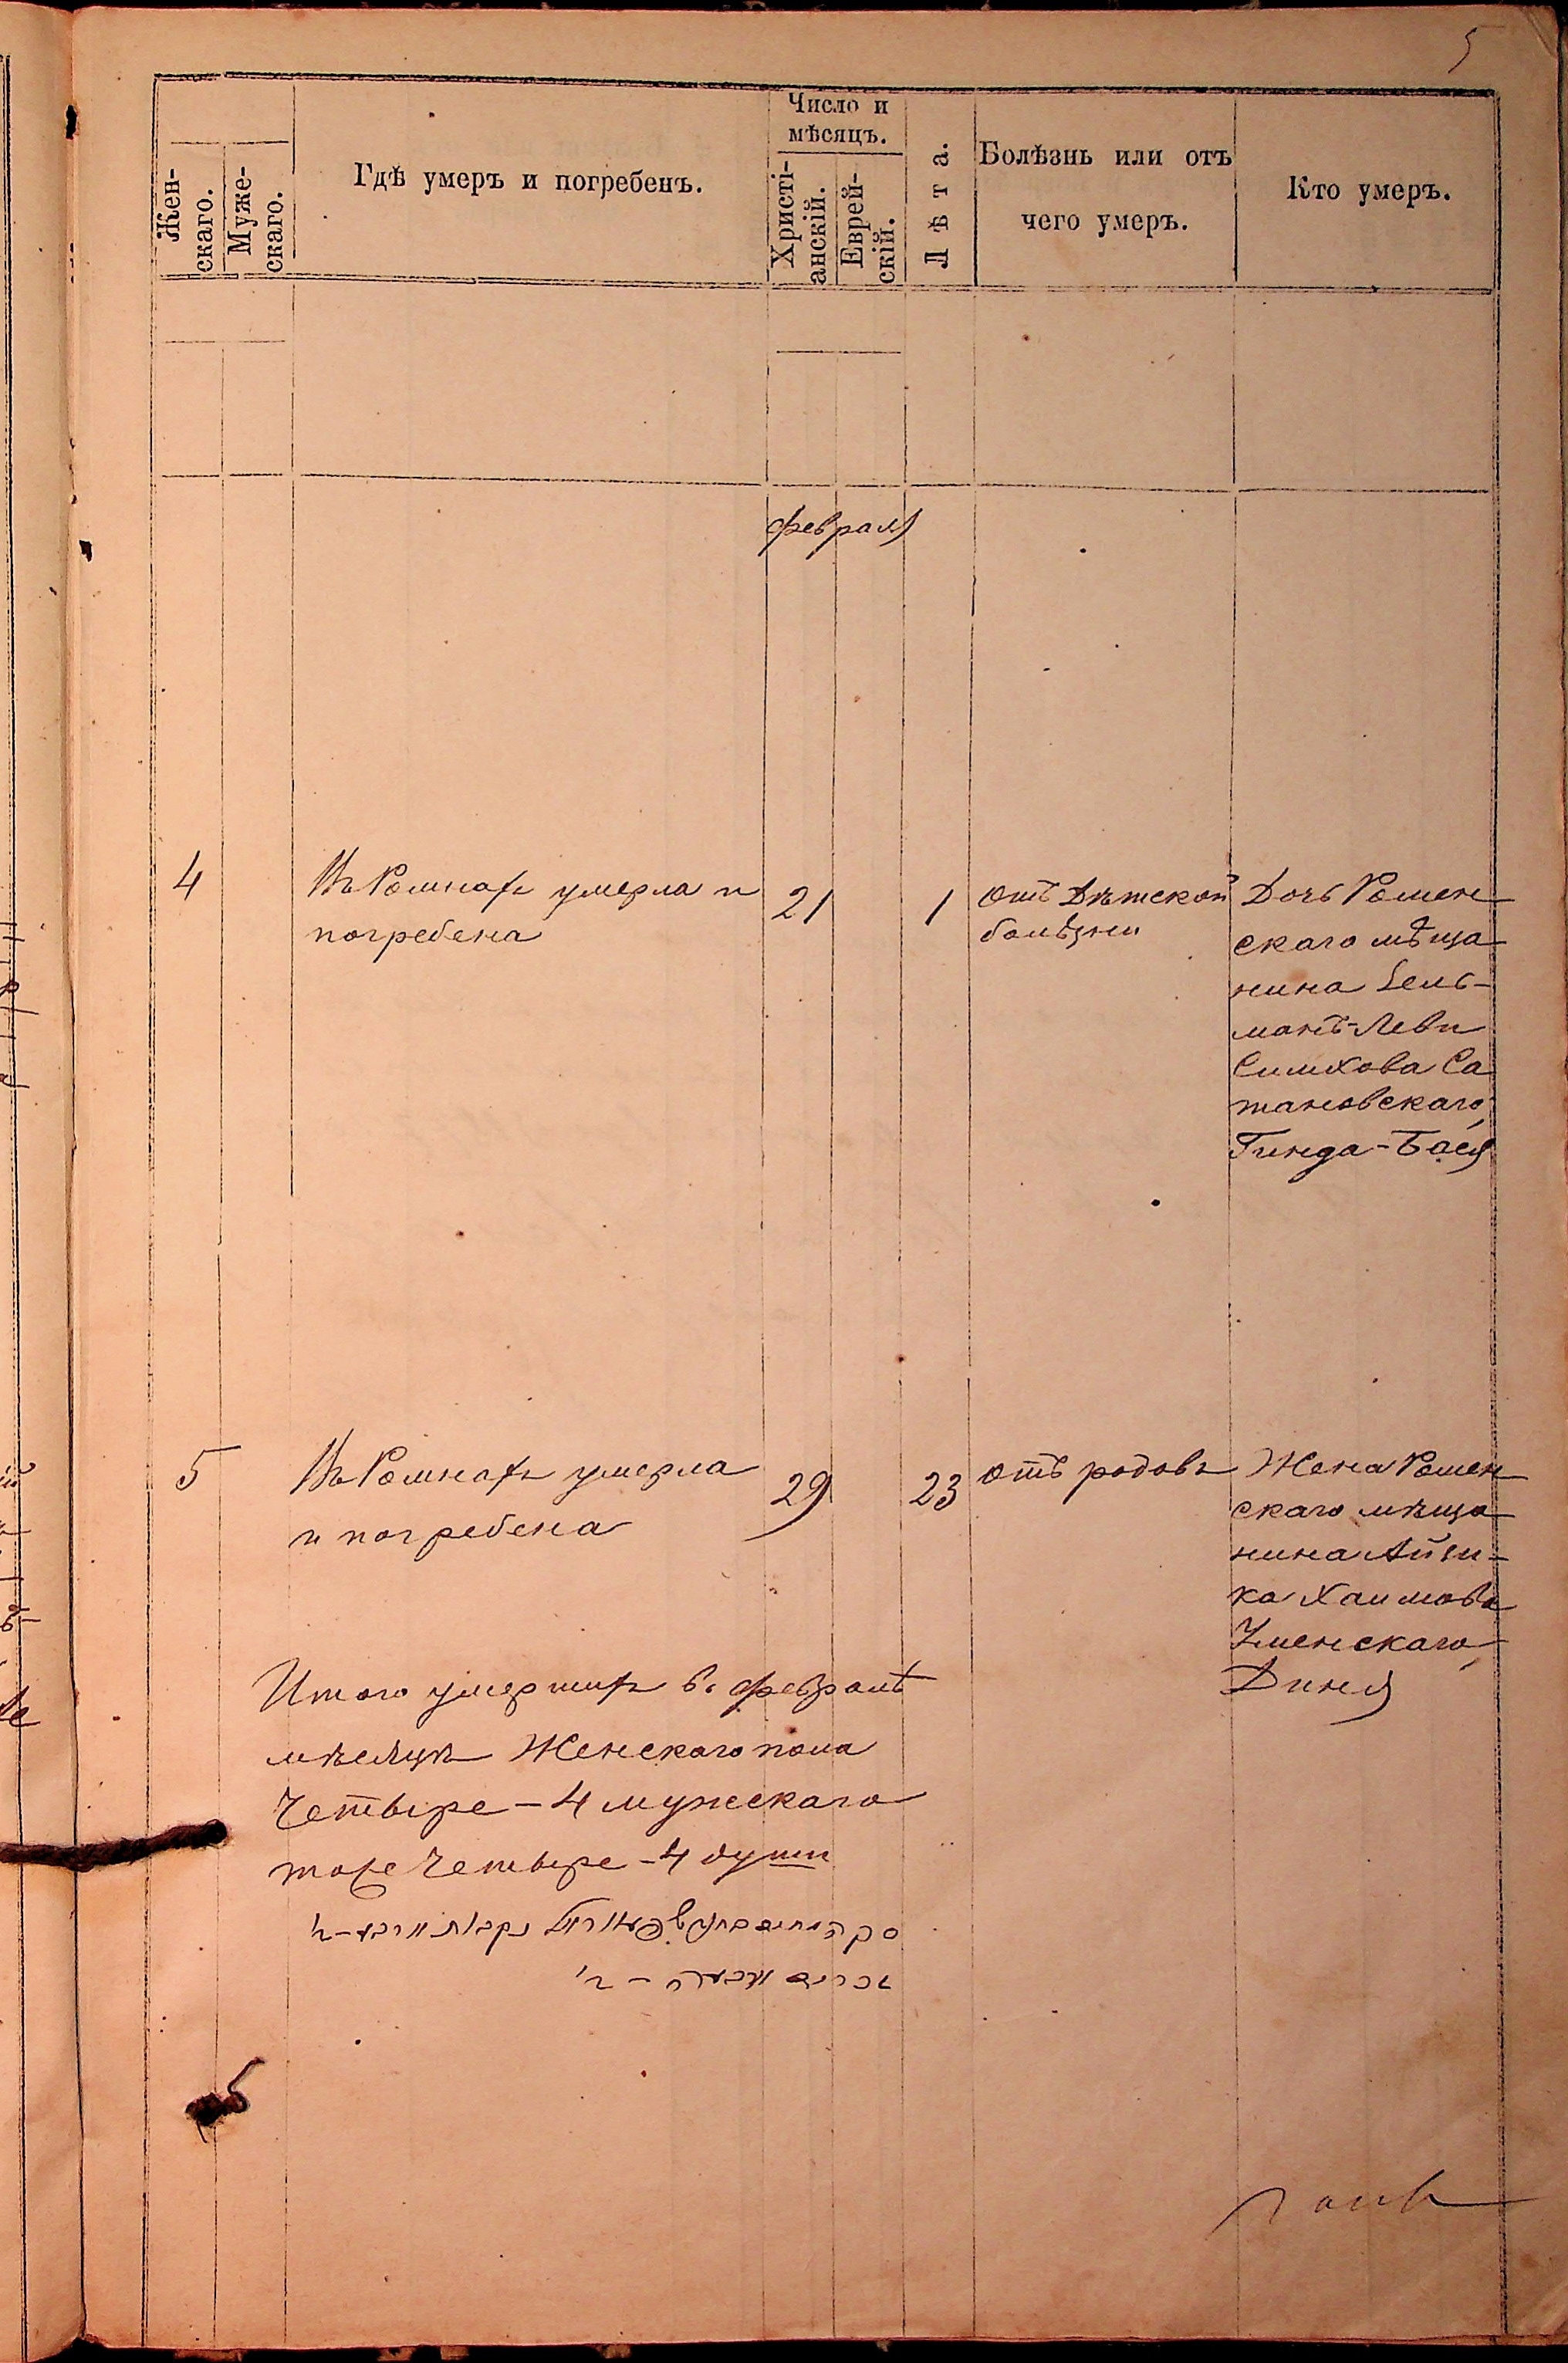 5
Жен-
скаго.
Муже-
скаго.
Гдѣ умеръ и погребенъ.
Число и
мѣсяцъ.
Христі-
анскій.
Еврей-
скій.
Лѣта.
Болѣзнь или отъ
чего умеръ.
Кто умеръ.
февраля
4
Въ Ромнахъ умерла и
погребена
21
1
отъ Дѣтской
болѣзни
Дочь Ромен
скаго мѣща
нина Зель-
манъ-Леви
Симхова Са
тановскаго
Гинда-Бася
5
Въ Ромнахъ умерла
и погребена
29
23
отъ родовъ
Жена Ромен
скаго мѣща
нина Айзи-
ка Хаимова
Уменскаго
Диня
Итого умершихъ въ февралѣ
мѣсяцѣ Женскаго пола
Четыре-4 мужскаго
тоже Четыре-4 души